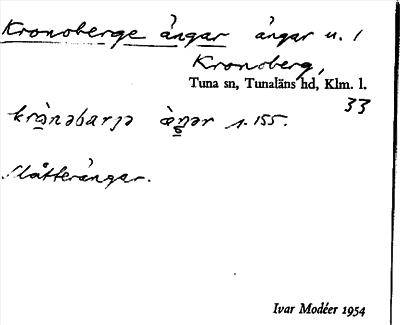 Kronoberge ängar ängar u. 1
Kronoberg,
Tuna sn, Tunaläns hd, Klm. l.
33
krònəbarjə ä̀ŋər s. 155.
Slåtterängar.
Ivar Modéer 1954